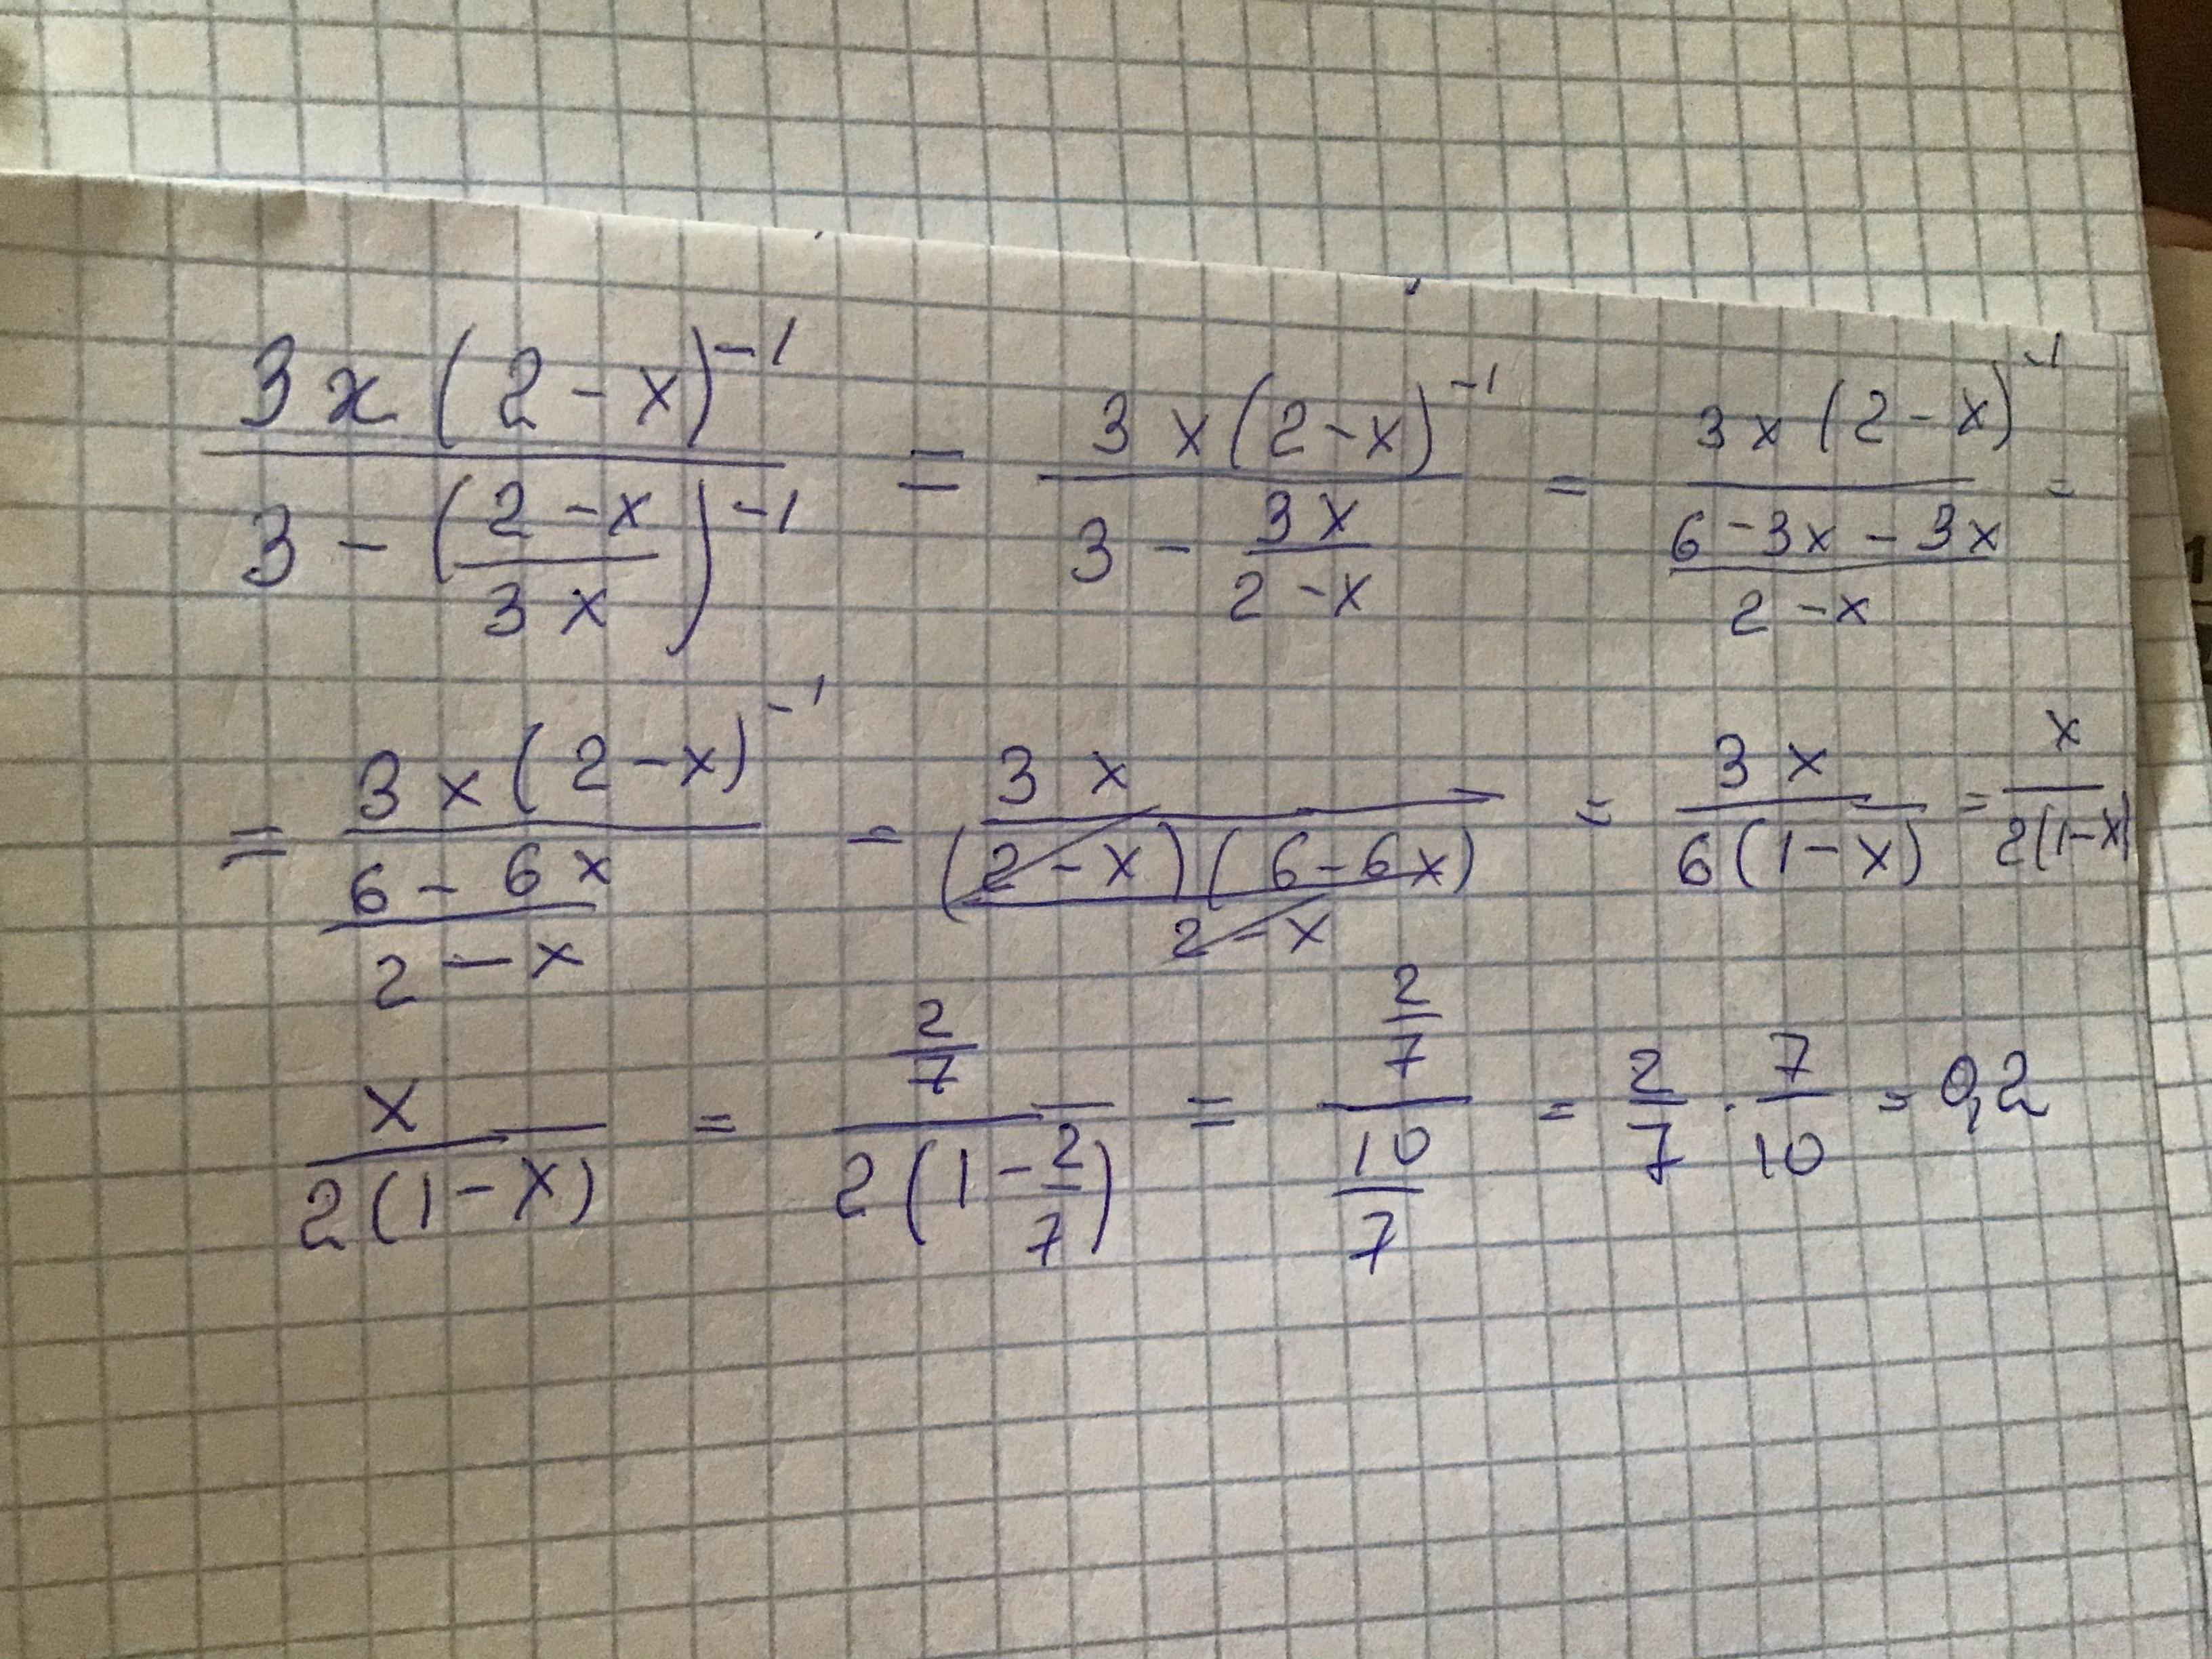 3x(2-x)^{-1} / (3 - ((2-x)/(3x))^{-1}) = 3x(2-x)^{-1} / (3 - 3x/(2-x)) = 3x(2-x)^{-1} / ((6-3x-3x)/(2-x)) =
= 3x(2-x)^{-1} / ((6-6x)/(2-x)) = 3x / ((2-x)(6-6x)/(2-x)) = 3x / (6(1-x)) = x / (2(1-x)
x / (2(1-x)) = (2/7) / (2(1-2/7)) = (2/7) / (10/7) = 2/7 · 7/10 = 0,2